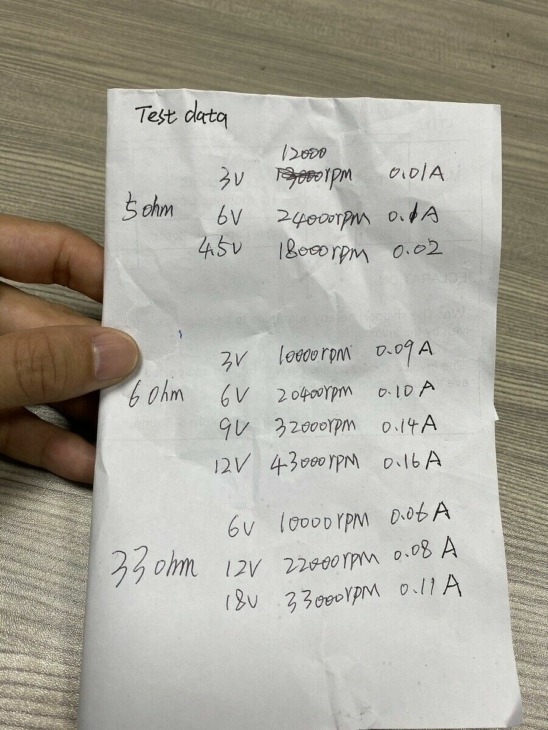 Test data
12000
3V rpm 0.01A
5ohm 6V 24000rpm 0.1A
4.5V 18000rpm 0.02
3V 10000rpm 0.09A
6ohm 6V 20400rpm 0.10A
9V 32000rpm 0.14A
12V 43000rpm 0.16A
6V 10000rpm 0.06A
33ohm 12V 22000rpm 0.08A
18V 33000rpm 0.11A